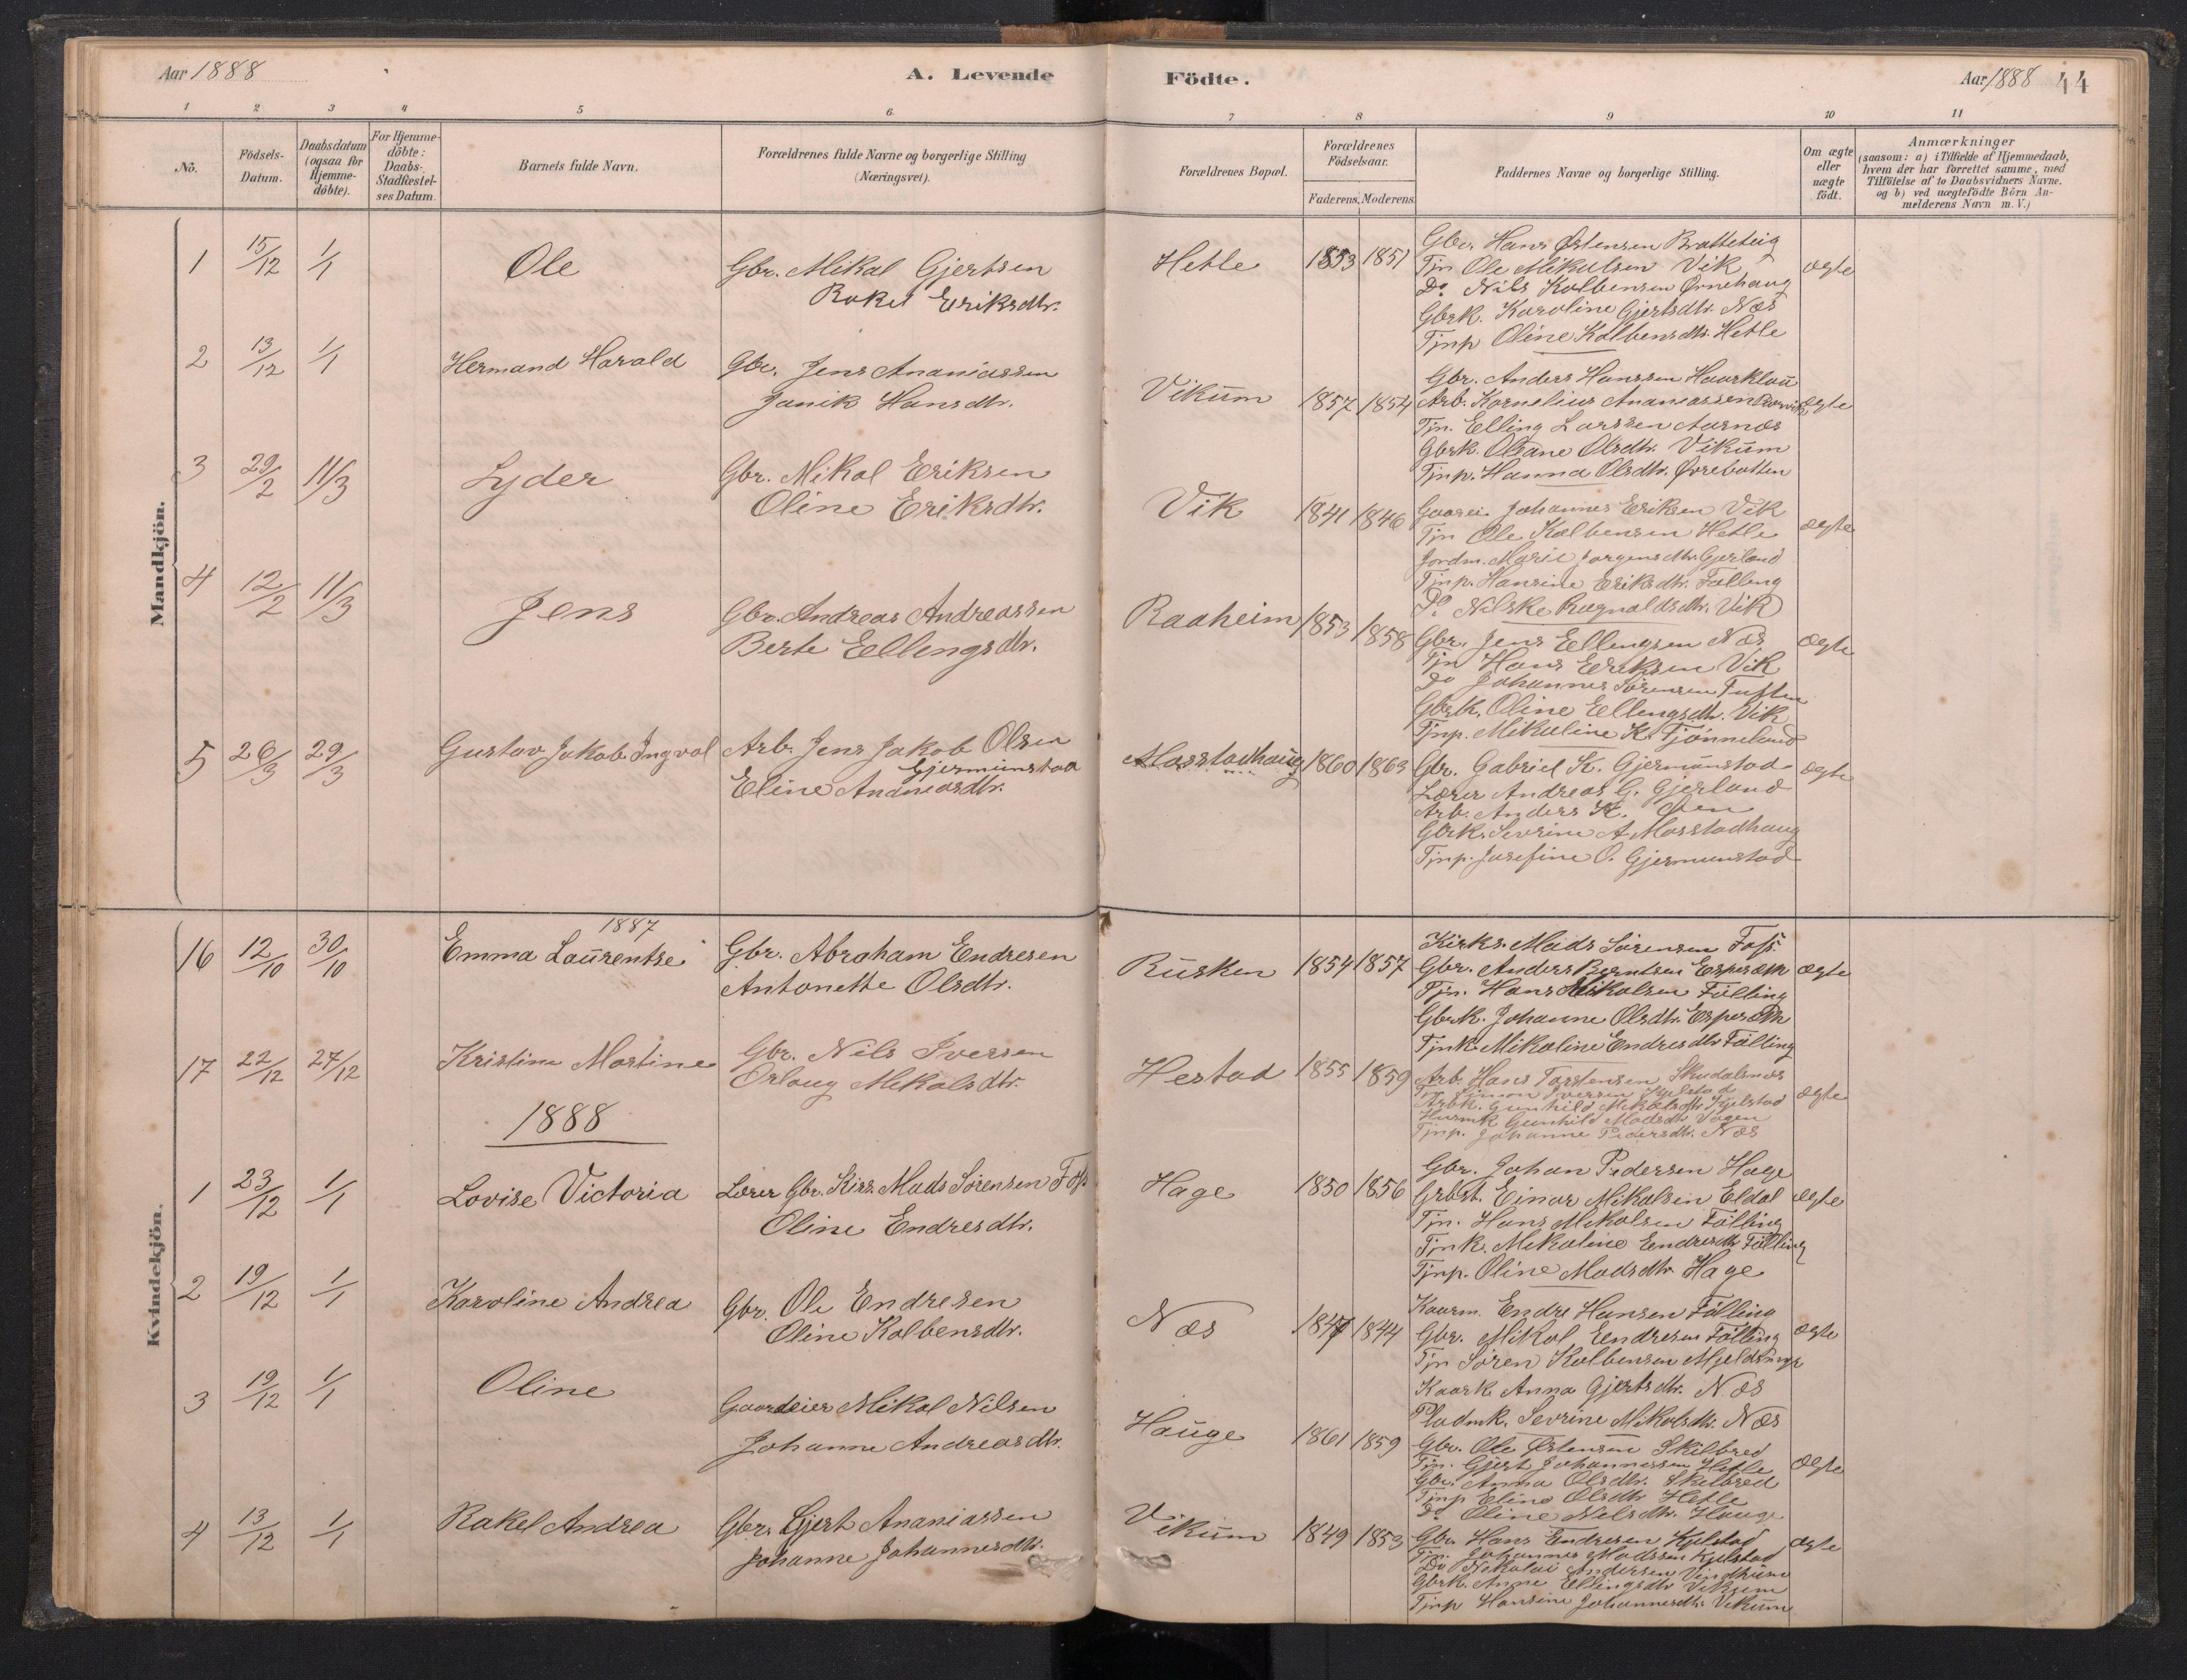 Aar 1888
A. Levende
Födte.
Aar 1888
44
1 2 3 4 5 6 7 8 9 10 11
No.
Födsels-
Datum.
Daabsdatum
(ogsaa for
Hjemme-
döbte).
For Hjemme-
döbte:
Daabs-
Stadfæstel-
ses Datum.
Barnets fulde Navn.
Forældrenes fulde Navne og borgerlige Stilling
(Næringsvei).
Forældrenes Bopæl.
Forældrenes
Födselsaar.
Faderens. Moderens.
Faddernes Navne og borgerlige Stilling.
Om ægte
eller
uægte
födt.
Anmærkninger
(saasom: a) i Tilfælde af Hjemmedaab,
hvem der har forrettet samme, med
Tilföielse af to Daabsvidners Navne.
og b) ved uægtefödte Börn An-
melderens Navn m. V.)
Mandkjön.
1 15/12 1/1 Ole
Gbr. Mikal Gjertsen
Rakel Eriksdtr.
Hetle 1853 1851
Gbr. Hans Østensen Bratteteig
Tjn Ole Mikalsen Vik
Do. Nils Kolbensen Ørnehaug
Gbrk. Karoline Gjertsdtr. Næs
Tjnp Oline Kolbensdtr. Hetle
ægte
2 13/12 1/1 Hermand Harald
Gbr. Jens Ananiassen
Janik Hansdtr.
Vikum 1857 1854
Gbr. Anders Hanssen Haarklau
Arb. Kornelius Ananiassen
Tjn. Elling Larssen Aarnæs
Gbrk. Oliane Olsdtr. Vikum
Tjnp. Hanna Olsdtr. Øvrebotten
ægte
3 29/2 11/3 Lyder
Gbr. Mikal Eriksen
Oline Eriksdtr.
Vik 1841 1846
Gaarei. Johannes Eriksen Vik
Tjn Ole Kolbensen Hetle
Jordm. Marie Jørgensdtr. Gjerland
Tjnp. Hansine Eriksdtr. Fælling
Do. Nilske Ragnaldsdtr. Vik
ægte
4 12/2 11/3 Jens
Gbr. Andreas Andreassen
Berte Ellingsdtr.
Raaheim 1853 1858
Gbr. Jens Ellingsen Næs
Tjn Hans Eriksen Vik
Do Johannes Sørensen Tuften
Gbrk. Oline Ellingsdtr. Vik
Tjnp. Mikaline K. Tjønneland
ægte
5 26/3 29/3 Gustav Jakob Ingval
Arb. Jens Jakob Olsen
Gjermunstad
Eline Andreasdtr.
Masstadhaug 1860 1863
Gbr. Gabriel K. Gjermunstad
Lærer Andreas G. Gjerland
Arb. Anders K. Øen
Gbrk. Sevrine A. Masstadhaug
Tjnp. Josefine O. Gjermunstad
ægte
Kvindekjön.
1887
16 12/10 30/10 Emma Laurentse
Gbr. Abraham Endresen
Antonette Olsdtr.
Rusken 1854 1857
Kirks. Mads Sørensen Foss
Gbr. Anders Berntsen Espesæth
Tjn. Hans Mikalsen Fælling
Gbrk. Johanne Olsdtr. Espesæth
Tjnk. Mikaline Endresdtr Fælling
ægte
17 22/12 27/12 Kristine Martine
Gbr. Nils Iversen
Orlaug Mikalsdtr.
Hestad 1855 1859
Arb. Hans Torstensen Skudalsnæs
Tjn Simon Iversen Kjelstad
Arbk. Gunhild Mikalsdtr Kjelstad
Husmk Gunhild Madsdtr Vågen
Tjnp. Johanne Pedersdtr. Næs
ægte
1888
1 23/12 1/1 Lovise Victoria
Lærer Gbr. Kirs. Mads Sørensen Foss
Oline Endresdtr.
Hage 1850 1856
Gbr. Johan Pedersen Hage
Grbst. Einar Mikalsen Eldal
Tjn. Hans Mikalsen Fælling
Tjnk. Mikaline Endresdtr Fælling
Tjnp. Oline Madsdtr. Hage
ægte
2 19/12 1/1 Karoline Andrea
Gbr. Ole Endresen
Oline Kolbensdtr.
Næs 1847 1844
Kaarm. Endre Hansen Fælling
Gbr. Mikal Endresen Fælling
Tjn Søren Kolbensen
Kaark Anna Gjertsdtr. Næs
Pladmk. Sevrine Mikalsdtr. Næs
ægte
3 19/12 1/1 Oline
Gaardeier Mikal Nilsen
Johanne Andreasdtr.
Hauge 1861 1859
Gbr. Ole Østensen Skilbred
Tjn. Gjert Johannessen Hetle
Gbr. Anna Olsdtr. Skilbred
Tjnp Eline Olsdtr Hetle
Do. Oline Nilsdtr. Hauge
ægte
4 13/12 1/1 Rakel Andrea
Gbr. Gjert Ananiassen
Johanne Johannesdtr.
Vikum 1849 1853
Gbr. Hans Endresen Kjelstad
Tjn. Johannes Madssen Kjelstad
Do Nikolai Andersen Vindheim
Gbrk. Anne Ellingsdtr Vikum
Tjnp Hansine Johannesdtr. Vikum
ægte